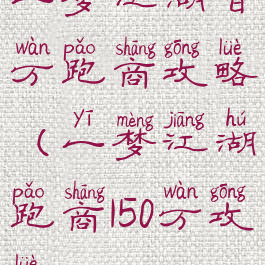 梦江湖
wàn pǎo shāng gōng lüè
万跑商攻略
yī mèng jiāng hú
（一梦江湖
pǎo shāng wàn gōng
跑商150万攻
lüè